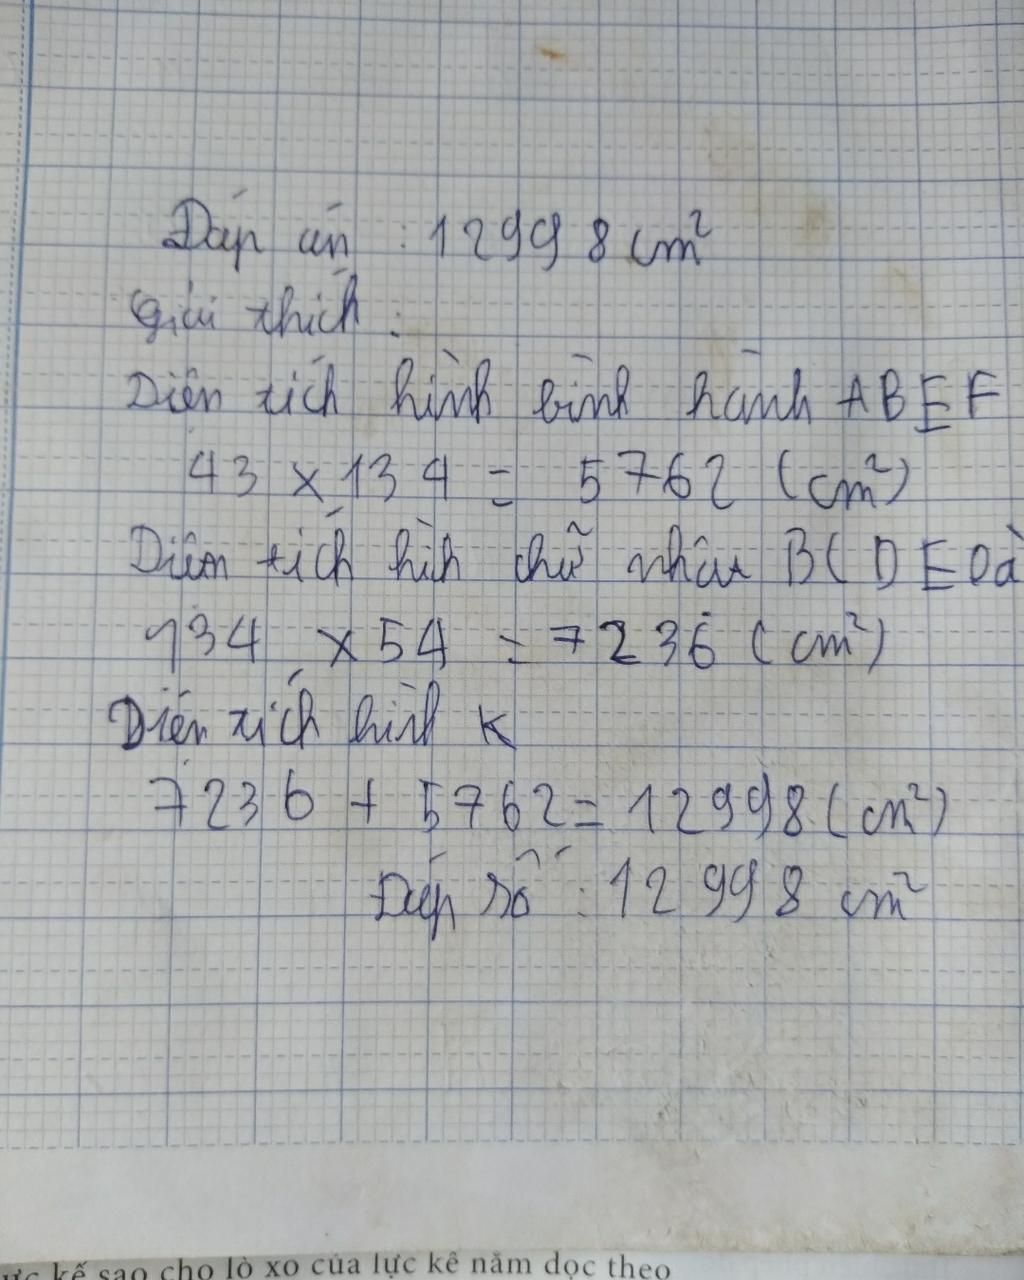 Đáp án : 12998 cm²
Giải thích :
Diện tích hình bình hành ABEF
43 x 134 = 5762 (cm²)
Diện tích hìh chữ nhật BCDE là
134 x 54 = 7236 (cm²)
Diện tích hình K
7236 + 5762 = 12998 (cm²)
Đáp số : 12998 cm²
lực kế sao cho lò xo của lực kế nằm dọc theo